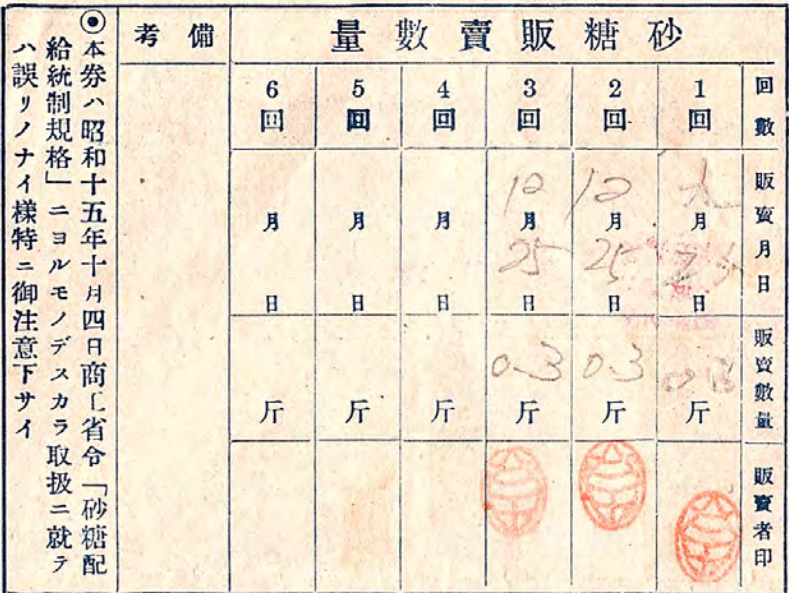 砂糖販賣數量
回數
1回
2回
3回
4回
5回
6回
備考
販賣月日
月 25日
12月25日
12月25日
月 日
月 日
月 日
販賣數量
斤
0.3斤
0.3斤
斤
斤
斤
販賣者印
◉本券ハ昭和十五年十月四日商工省令「砂糖配
給統制規格」ニヨルモノデスカラ取扱ニ就テ
ハ誤リノナイ樣特ニ御注意下サイ